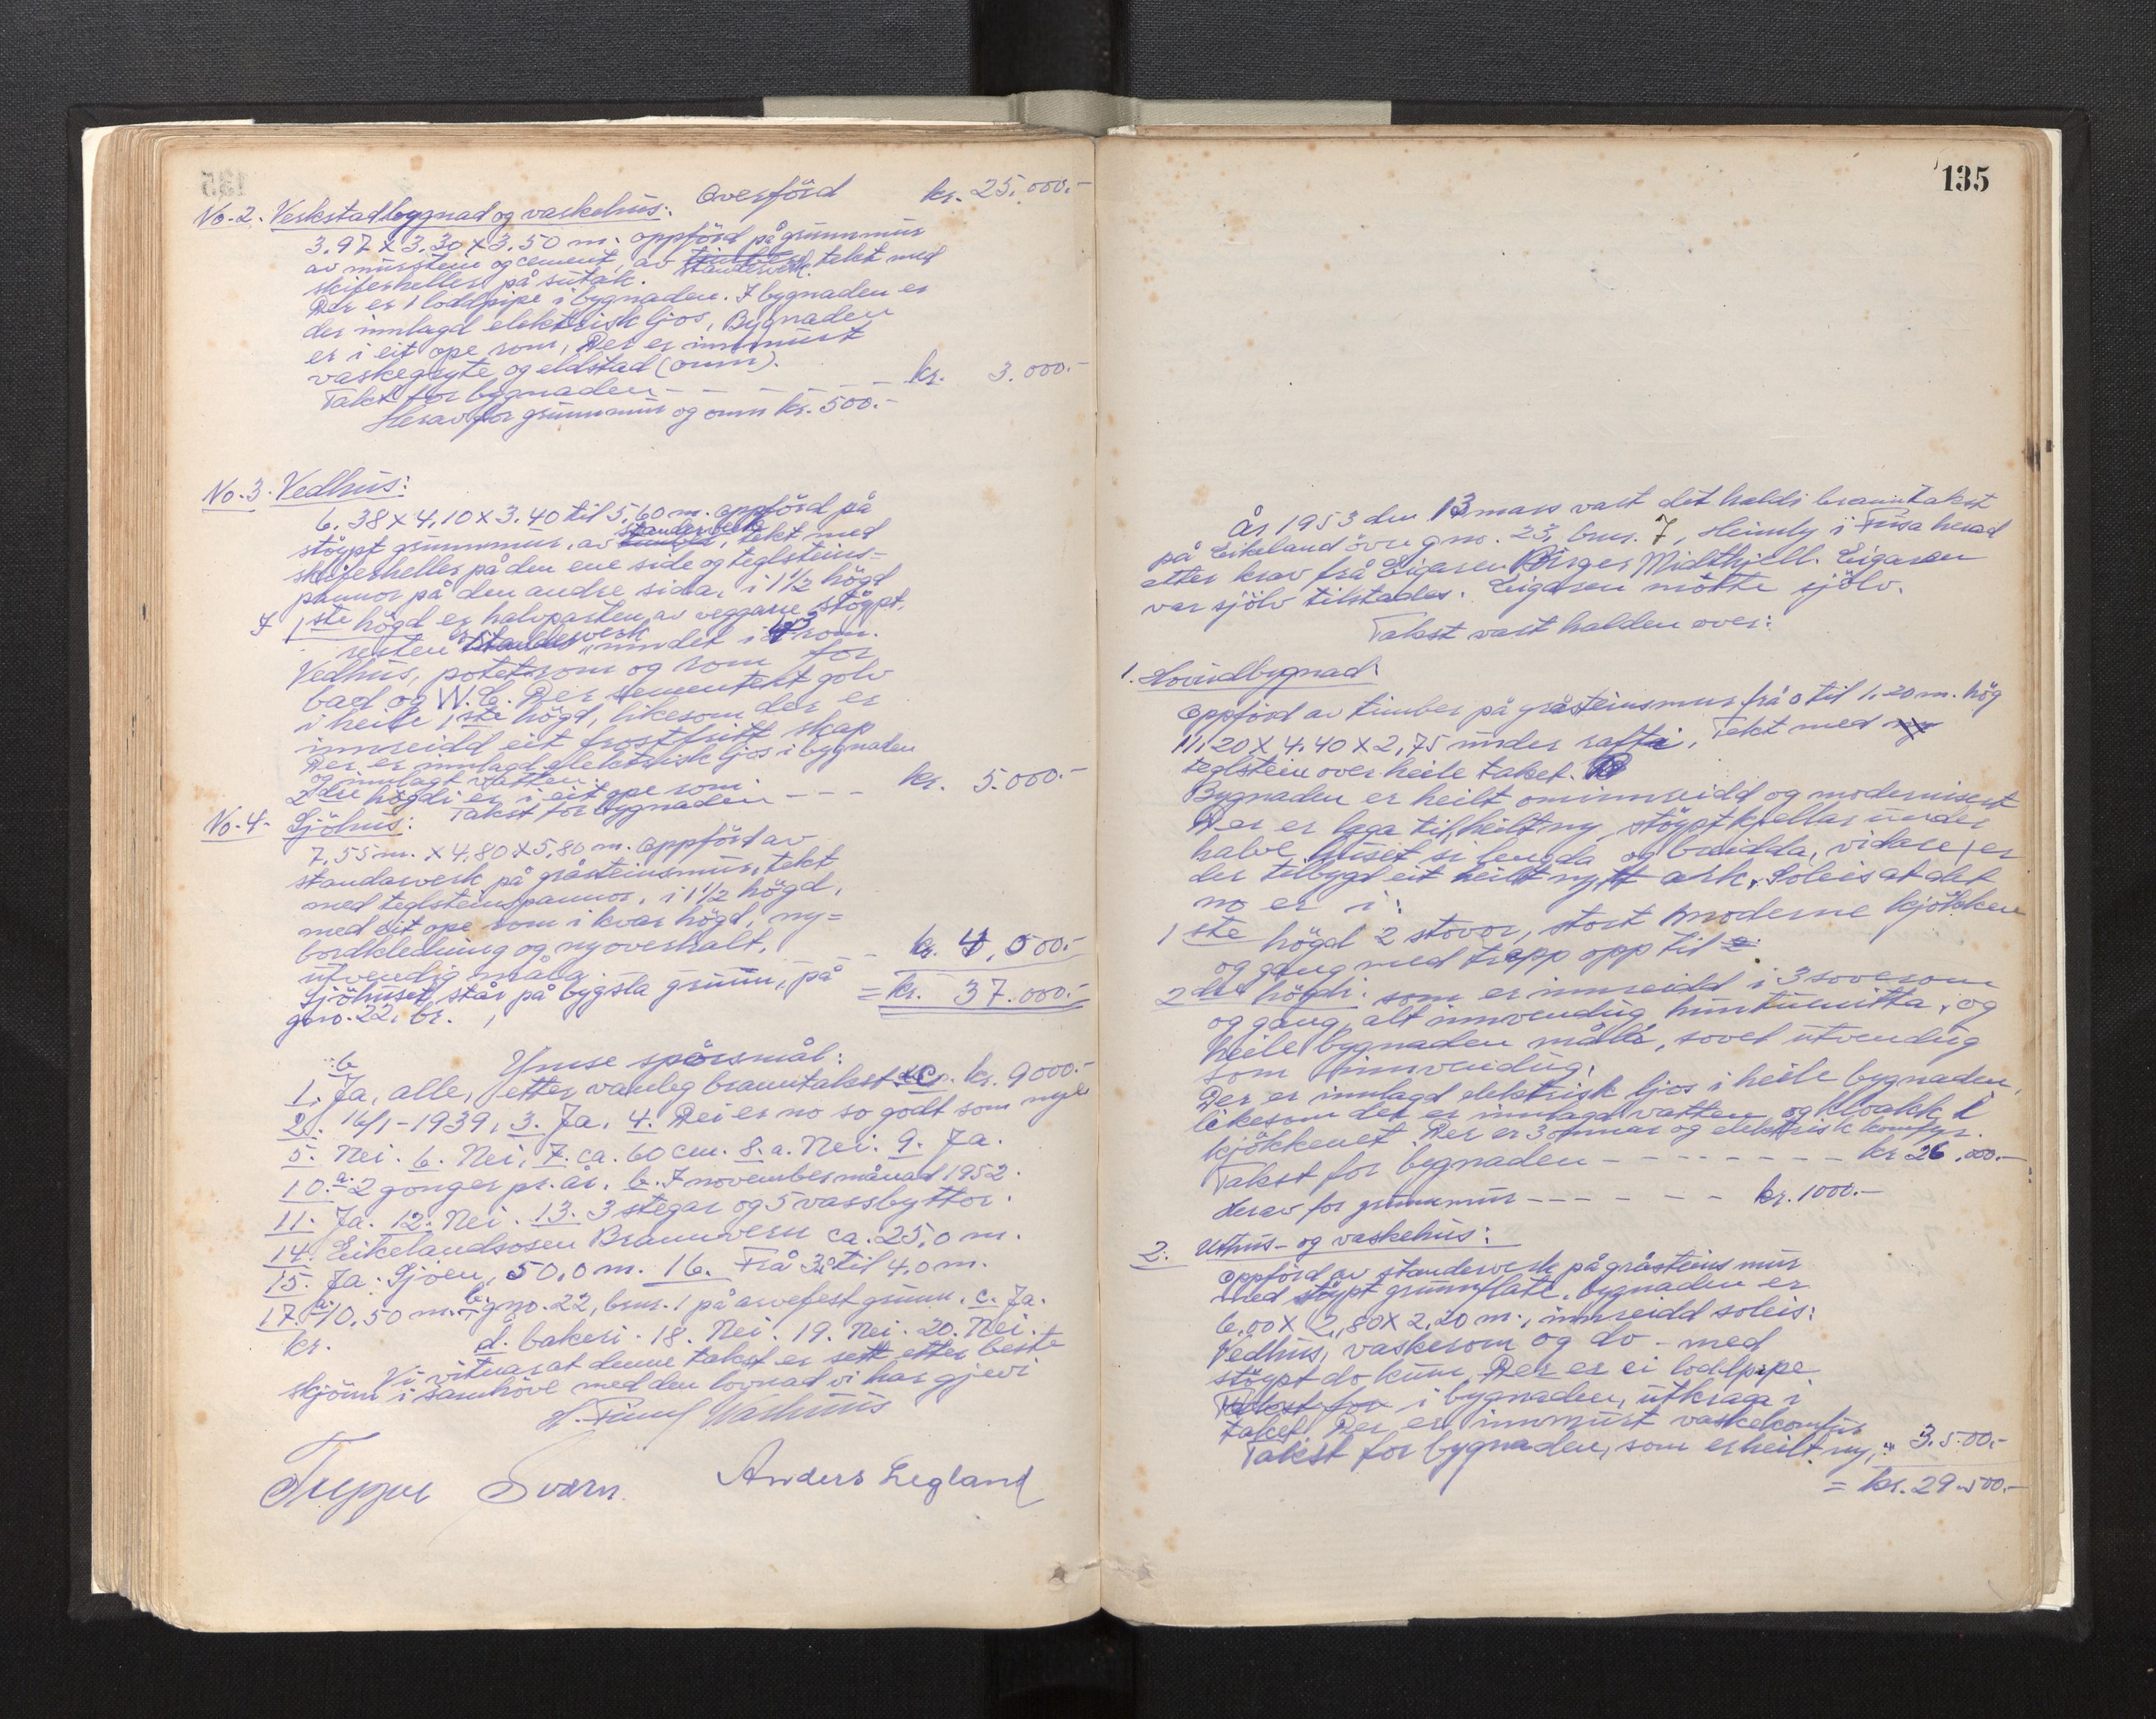 Overförd kr. 25.000.-
No. 2. Verkstadbyggnad og vaskehus:
3.97 x 3.30 x 3.50 m. oppförd på grunnmur
av murstein og cement, av standerverk, tekt med
skiferheller på sutak.
Der er 1 loddpipe i bygnaden. I bygnaden er
der innlagd elektrisk ljos, Bygnaden
er i eit ope rom, Der er innmurt
vaskegryte og eldstad (omn).
Takst for bygnaden - - - - - - kr. 3.000.-
Herav for grunnmur og omn kr. 500.-
No. 3. Vedhus:
6.38 x 4.10 x 3.40 til 5.60 m. oppförd på
stöypt grunnmur, av standerverk, tekt med
skiferheller på den ene side og teglsteins-
pannor på den andre sida, i 1 1/2 högd
I 1ste högd er halvparten av veggane stöypt,
resten er standerverk, inndet i 3 rom.
Vedhus, potetrom og rom for
bad og W.C. Der er sementert golv
i heile 1ste högd, likesom der er
innreidd eit frostfritt skap
Der er innlagd elektrisk ljos i bygnaden
og innlagt vatten.
2dre högdi er i eit ope rom
Takst for bygnaden - - - kr. 5.000.-
No. 4. Sjöhus:
7,55 m. x 4,80 x 5,80 m. oppförd av
standarverk på gråsteinsmur, tekt
med teglsteinspannor, i 1 1/2 högd,
med eit ope rom i kvar högd, ny=
bordkledning og ny overhalt,
utvendig måla. - - kr. 4,000.-
Sjöhuset står på bygsla grunn, på = kr. 37.000.-
gno. 22, br. 1
Ymse spörsmål:
1. Ja, alle, b etter vanleg branntakst c. kr. 9000.-
2. 16/1-1939, 3. Ja. 4. Dei er no so godt som nye
5. Nei. 6. Nei, 7. ca. 60 cm. 8. a. Nei. 9. Ja.
10. a. 2 gonger pr. år. b. I november månad 1952.
11. Ja. 12. Nei. 13. 3 stegar og 5 vassbyttor.
14. Eikelandsosen Brannvern ca. 25,0 m.
15. Ja: Sjöen, 50,0 m. 16. Frå 3, til 4.0 m.
17. a. 10,50 m. b. gno. 22, bnr. 1 på arvefest grunn. c. Ja.
kr. d. bakeri. 18. Nei. 19. Nei. 20. Nei.
Vi vitnar at denne takst er sett etter beste
skjönn i samhöve med den lovnad vi har gjevi
Trygve Sværn Anders Legland
135
År 1953 den 13 mars vart det haldi branntakst
på Eikeland övre gno. 23, bnr. 7, Heimly i Fusa herad
etter krav frå Eigaren Birger Midthjell. Eigaren
var sjölv tilstades. Eigaren mötte sjölv.
Takst vart halden over:
1. Hovudbygnad:
Oppförd av timber på gråsteinsmur frå 0 til 1.20 m. hög
11,20 x 4.40 x 2,75 under rafti, Tekt med
teglstein over heile taket.
Bygnaden er heilt ominnreidd og modernisert
Der er laga til heilt ny stöypt kjellar under
halve huset si lengda og breidda, vidare er
der tilbygd eit heilt nytt ark. Soleis at det
no er i:
1ste högd 2 stovor, stort moderne kjökken
og gang med trapp opp til
2dre högdi. som er innreidd i 3 soverom
og gang, alt innvendig huntunitta, og
heile bygnaden måla, sovel utvendig
som innvendig.
Der er innlagd elektrisk ljos i heile bygnaden,
likesom det er innlagd vatten og kloakk i
kjökkenet. Der er 3 omnar og elektrisk komfyr.
Takst for bygnaden - - - - - - - - kr 26.000.-
Herav for grunnmur - - - - - - kr. 1000.-
2. Uthus- og vaskehus:
Oppförd av standerverk på gråsteins mur
med stöypt grunnflate. bygnaden er
6,00 x 2,80 x 2,20 m., innreidd soleis:
Vedhus, vaskerom og do - med
stöypt do kum. Der er ei loddpipe
Takst for i bygnaden, utkraga i
taket. Der er innmurt vaskekomfur
Takst for bygnaden, som er heilt ny, " 3.500.-
= kr. 29.500.-